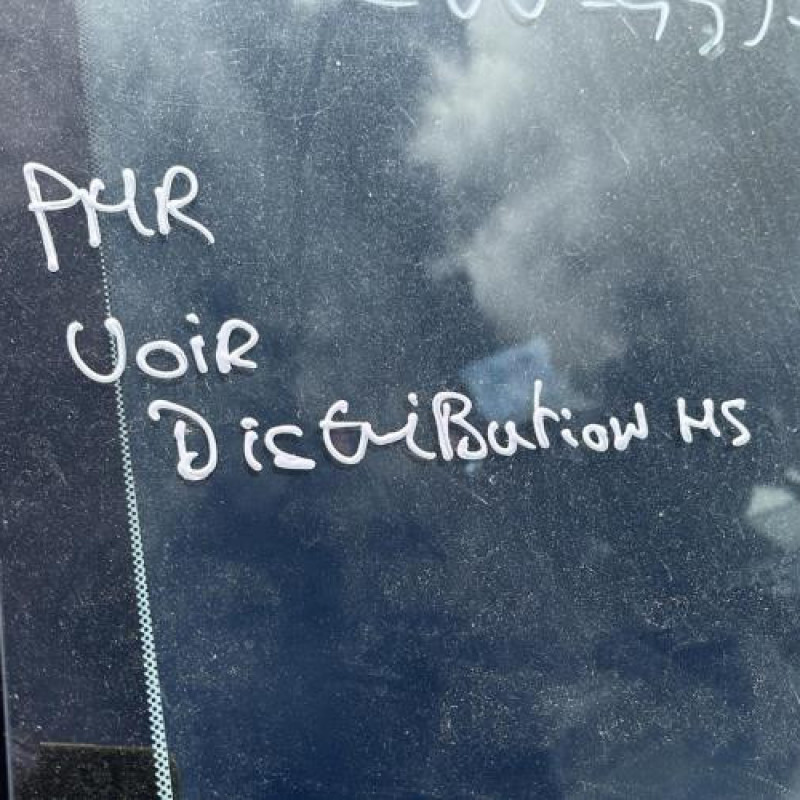 PMR
VOIR
DistriBution HS